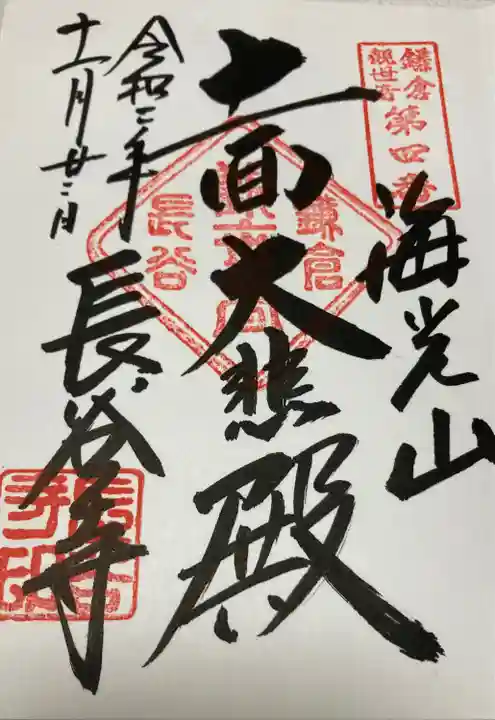 鎌倉
観世音
第四番
海光山
十一面大悲殿
鎌倉
長谷
令和二年
十一月廿二日
長谷寺